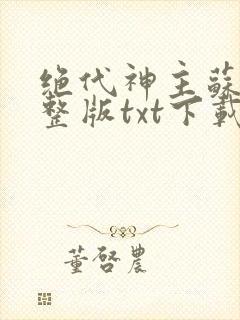 绝代神主蘇
整版txt下載
董啓農